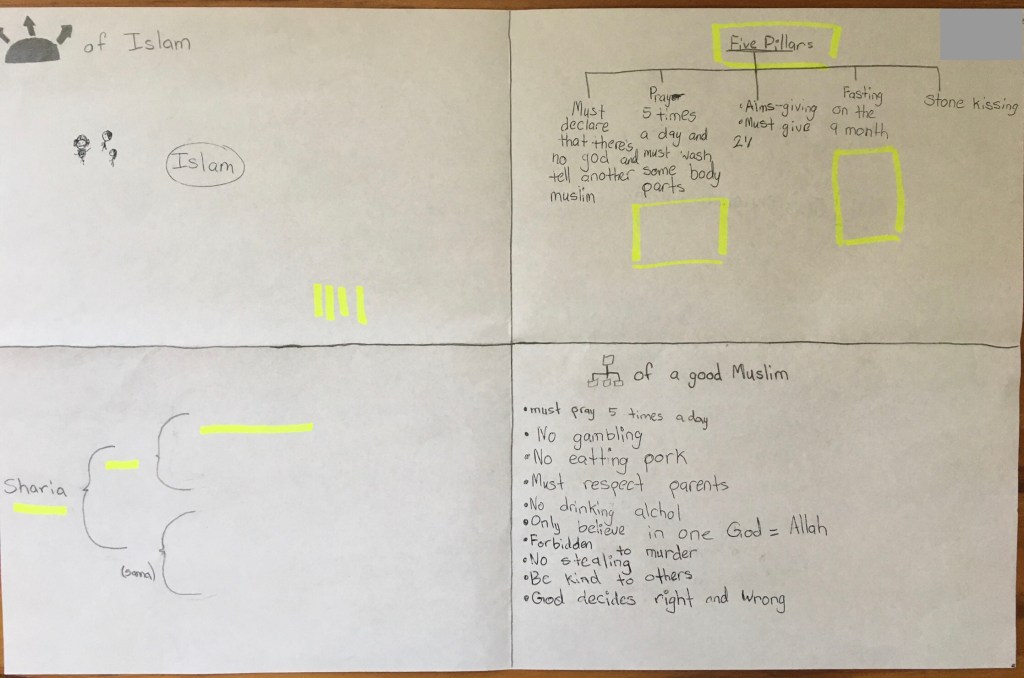 of Islam
Islam
Five Pillars
Must
declare
that there's
no god and
tell another
muslim
Pray
5 times
a day and
must wash
some body
parts
• Alms-giving
• Must give
Fasting
on the
9 month
Stone kissing
Sharia
of a good Muslim
• must pray 5 times a day
• No gambling
• No eatting pork
• Must respect parents
• No drinking alchol
• Only believe in one God = Allah
• Forbidden to murder
• No stealing
• Be kind to others
• God decides right and wrong